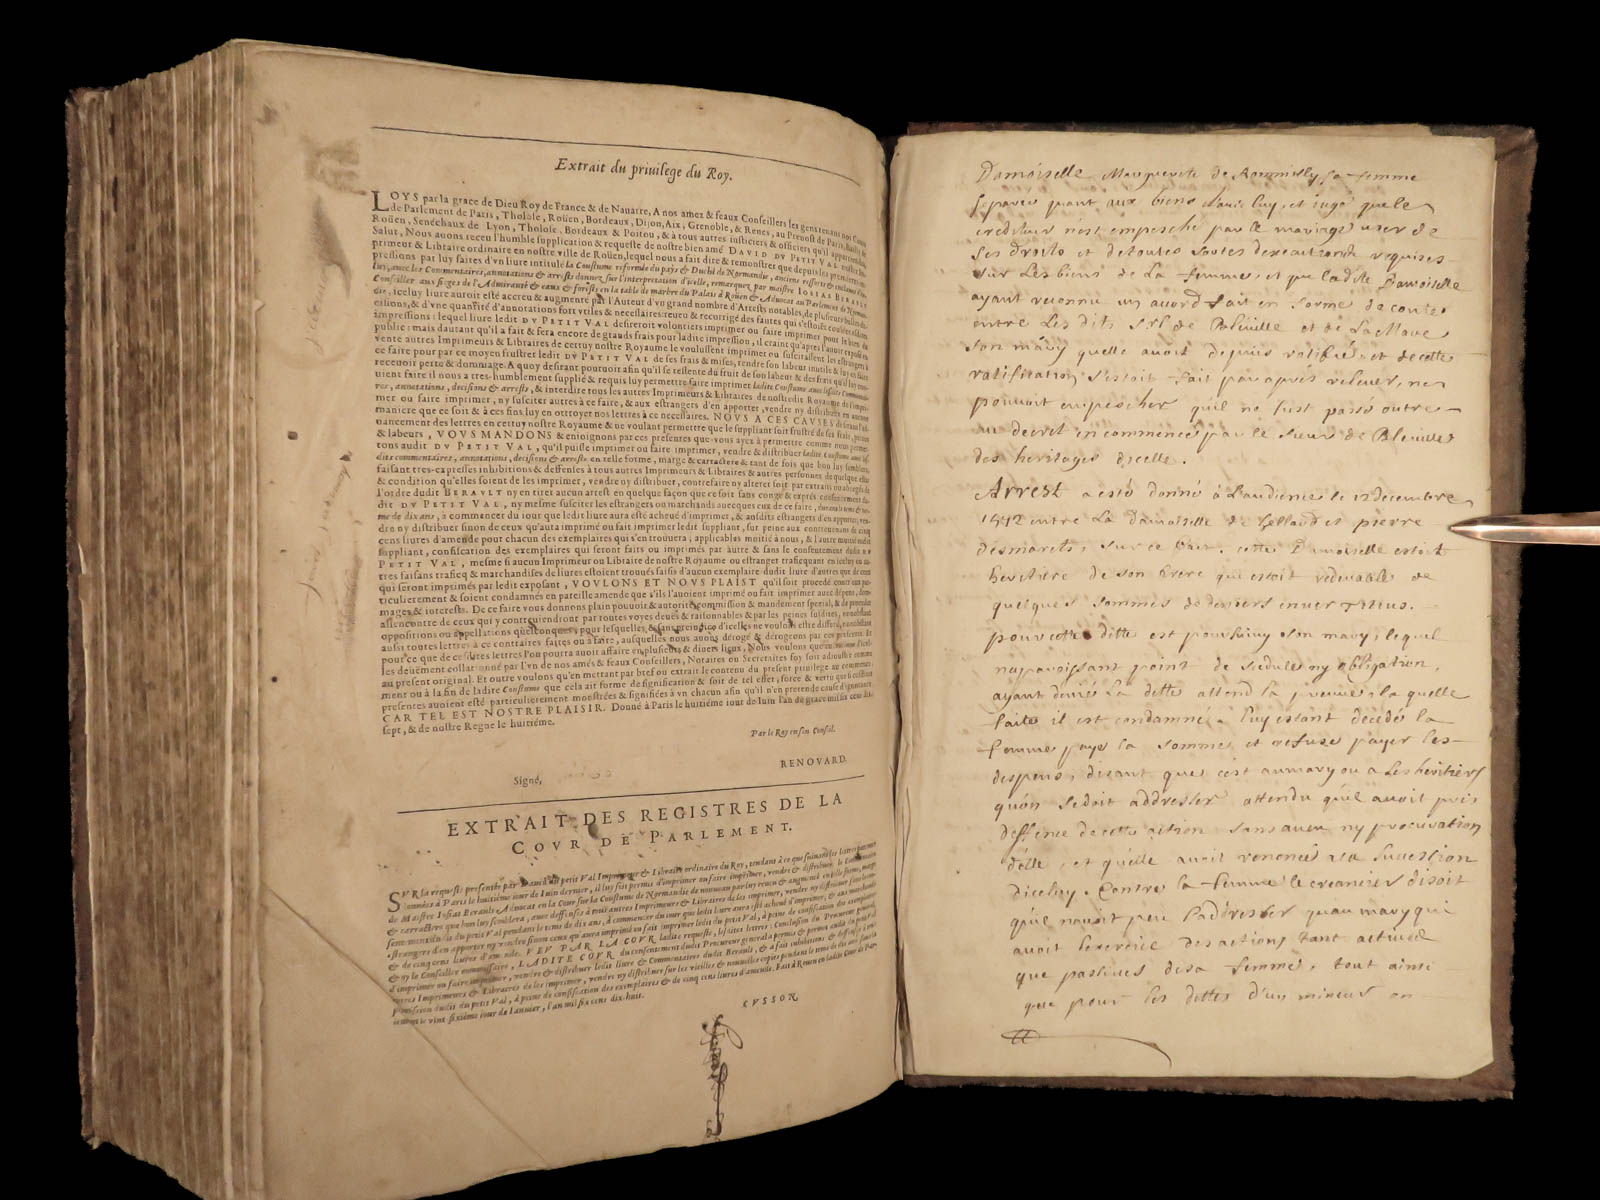 Extrait du priuilege du Roy.
LOYS par la grace de Dieu Roy de France & de Nauarre, A nos amez & feaux Conseillers les gens tenans nos Cours
de Parlement de Paris, Tholose, Roüen, Bordeaux, Dijon, Aix, Grenoble, & Renes, au Preuost de Paris, Baillif de
Roüen, Senéchaux de Lyon, Tholose, Bordeaux & Poitou, & à tous autres iusticiers & officiers qu'il appartiendra,
Salut, Nous auons receu l'humble supplication & requeste de nostre bien amé DAVID DV PETIT VAL
primeur & Libraire ordinaire en nostre ville de Roüen, lequel nous a fait dire & remonstrer que depuis les premieres im-
pressions par luy faites d'vn liure intitulé la Coustume reformée du pays & Duché de Normandie, anciens ressorts & enclaues d'ice-
luy, auec les Commentaires, annotations & arrests donnez sur l'interpretation d'icelle, remarquez par maistre IOSIAS BERAVLT
Conseiller aux sieges de l'Admirauté & eaux & forests en la table de marbre du Palais à Roüen & Aduocat au Parlement de Norman-
die, icelluy liure auroit esté accreu & augmenté par l'Auteur d'vn grand nombre d'Arrests notables, de plusieurs belles de-
cisions, & d'vne quantité d'annotations fort vtiles & necessaires: reueu & recorrigé des fautes qui s'estoiét coulées esdites
impressions: lequel liure ledit DV PETIT VAL desireroit volontiers imprimer ou faire imprimer pour le bien du
public: mais dautant qu'il a fait & fera encore de grands frais pour ladite impression, il craint qu'apres l'auoir exposé en
vente autres Imprimeurs & Libraires de cettuy nostre Royaume le voulussent imprimer ou suscitassent les estrangers à
ce faire pour par ce moyen frustrer ledit DV PETIT VAL de ses frais & mises, rendre son labeur inutile & luy en faire
receuoir perte & dommage. A quoy desirant pouruoir afin qu'il se ressente du fruit de son labeur & des frais qu'il luy con-
uient faire il nous a tres-humblement supplié & requis luy permettre faire imprimer ladite Coustume auec lesdits Commentai-
res, annotations, decisions & arrests, & interdire tous les autres Imprimeurs & Libraires de nostredit Royaume de l'impri-
mer ou faire imprimer, ny susciter autres à ce faire, & aux estrangers d'en apporter, vendre ny distribuer en aucune
maniere que ce soit & à ces fins luy en ottroyer nos lettres à ce necessaires. NOVS A CES CAVSES
uancement des lettres en cettuy nostre Royaume & ne voulant permettre que le suppliant soit frustré de ses frais,
& labeurs, VOVS MANDONS & enioignons par ces presentes que vous ayez à permettre comme nous permet-
tons audit DV PETIT VAL, qu'il puisse imprimer ou faire imprimer, vendre & distribuer ladite Coustume auec les-
dits commentaires, annotations, decisions & arrests en telle forme, marge & carractere & tant de fois que bon luy semblera,
faisant tres-expresses inhibitions & deffenses à tous autres Imprimeurs & Libraires & autres personnes de quelque estat
& condition qu'elles soient de les imprimer, vendre ny distribuer, contrefaire ny alterer soit par extraits ou abregés de
l'ordre dudit BERAVLT ny en tirer aucun arrest en quelque façon que ce soit sans congé & exprés consentement du-
dit DV PETIT VAL, ny mesme susciter les estrangers ou marchands auecques eux de ce faire,
me de dix ans, à commencer du iour que ledit liure aura esté acheué d'imprimer, & ausdits estrangers d'en apporter, ven-
dre ny distribuer sinon de ceux qu'aura imprimé ou fait imprimer ledit suppliant, sur peine aux contreuenans de cinq
cens liures d'amende pour chacun des exemplaires qui s'en trouuera; applicables moitié à nous, & l'autre moitié audit
suppliant, confiscation des exemplaires qui seront faits ou imprimés par autre & sans le consentement dudit DV
PETIT VAL, mesme si aucun Imprimeur ou Libraire de nostre Royaume ou estranger trafiequant en iceluy ou au-
tres faisans trafieq & marchandises de liures estoient trouués saisis d'aucun exemplaire dudit liure d'autres que de ceux
qui seront imprimés par ledit exposant, VOVLONS ET NOVS PLAIST qu'il soit procedé contr'eux par-
ticulierement & soient condamnés en pareille amende que s'ils l'auoient imprimé ou fait imprimer auec dépens, dom-
mages & interests. De ce faire vous donnons plain pouuoir & autorité, commission & mandement special, & de proceder
allencontre de ceux qui y contreuiendront par toutes voyes deuës & raisonnables & par les peines susdites, nonobstant
oppositions ou appellations quelconques, pour lesquelles & sans preiudice d'icelles ne voulons estre differé, nonobstant
aussi toutes lettres à ce contraires faites ou à faire, ausquelles nous auons dérogé & dérogeons par ces presentes. Et
pour ce que de cesdites lettres l'on pourra auoir affaire en plusieurs & diuers lieux, Nous voulons qu'au vidimus d'icel-
les deuëment collationné par l'vn de nos amés & feaux Conseillers, Notaires ou Secretaires foy soit adioustée comme
au present original. Et outre voulons qu'en mettant par bref ou extrait le contenu du present priuilege au commence-
ment ou à la fin de ladite Coustume que cela ait forme de signification & soit de tel effet, force & vertu que si cesdites
presentes auoient esté particulierement monstrées & signifiées à vn chacun afin qu'il n'en pretende cause d'ignorance,
CAR TEL EST NOSTRE PLAISIR. Donné à Paris le huitiéme iour de Iuin l'an de grace mil six cens dix-
sept, & de nostre Regne le huitiéme.
Par le Roy en son Conseil.
Signé, RENOVARD.
EXTRAIT DES REGISTRES DE LA
COVR DE PARLEMENT.
SVR la requeste presentée par Dauid du petit Val Imprimeur & Libraire ordinaire du Roy, tendant à ce que suiuant les lettres par
données à Paris le huitiéme iour de Iuin dernier, il luy soit permis d'imprimer ou faire imprimer, vendre & distribuer le Commentaire
de Maistre Iosias Berault Aduocat en la Cour sur la Coustume de Normandie de nouueau par luy reueu & augmenté en telle forme, marge
& carractere que bon luy semblera, auec deffenses à tous autres Imprimeurs & Libraires de les imprimer, vendre ny distribuer sans le con-
sentement dudit du petit Val pendant le tems de dix ans, à commencer du iour que ledit liure aura esté acheué d'imprimer, & aux marchands
estrangers d'en apporter ny vendre sinon ceux qu'aura imprimé ou fait imprimer ledit du petit Val, à peine de confiscation des exemplaires
& de cinq cens liures d'amende. VEV PAR LA COVR ladite requeste, lesdites lettres: Conclusion du Procureur general,
& oy le Conseiller commissaire, LADITE COVR du consentement dudit Procureur general a permis & permet audit du petit Val
d'imprimer ou faire imprimer, vendre & distribuer ledit liure & Commentaires dudit Berault, & a fait inhibitions & deffenses à tous
autres Imprimeurs & Libraires de les imprimer, vendre ny distribuer sur les vieilles & nouuelles copies pendant le tems de dix ans sans la
permission dudit du petit Val, à peine de confiscation des exemplaires & de cinq cens liures d'amende. Fait à Roüen en ladite Cour de Par-
lement le vint sixiéme iour de Ianuier, l'an mil six cens dix-huit.
CVSSON.
Damoiselle Marguerite de Rommilly sa femme
separée quant aux biens d'auec luy, et iugé que le
crediteur n'est empesché par le mariage user de
ses droits et de toutes sortes d'execution requises
sur les biens de la femme, et que ladite Damoiselle
ayant reconnu un acord fait en forme de conte
entre les dits srs de Bleville et de la Mare
son mary quelle auoit depuis ratifié et de cette
ratification s'estoit fait par apres releuer, ne
pouuoit empescher qu'il ne fust passé outre
au decret encommencé par le sieur de Bleuille
des heritages d'icelle.
Arrest a esté donné à l'audience le 12 decembre
entre la damoiselle de et pierre
desmarets, sur ce fait. cette Damoiselle estoit
heritiere de son frere qui estoit redeuable de
quelques sommes de deniers enuers Titius.
pour cette ditte est poursuiuy son mary, lequel
n'aparoissant point de sedule ny obligation,
ayant denié la dette attend la preuue, la quelle
faite il est condamné. luy estant decedé la
femme paye la somme et refuse payer les
despens, disant que c'est au mary ou a ses heritiers
qu'on se doit addresser attendu qu'il auoit pris
deffence de cette action sans auoir ny procuration
d'elle, et qu'elle auoit renoncé a sa succession
d'iceluy. Contre la femme le creancier disoit
qu'il n'auoit peu s'addresser qu'au mary qui
auoit l'exercice des actions tant actiues
que passiues de sa femme, tout ainsi
que pour les dettes d'un mineur on